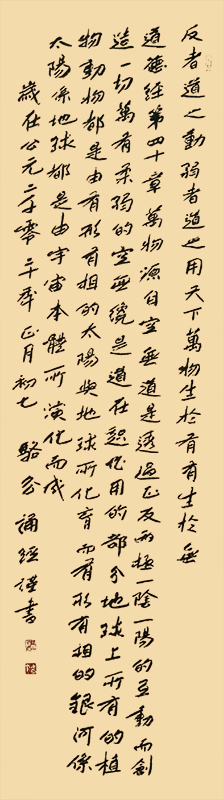 反者道之動弱者道之用天下萬物生於有有生於無
道德經第四十章萬物源自空無道是透過正反兩極一陰一陽的互動而創
造一切萬有柔弱的空無纔是道在起作用的部分地球上所有的植
物動物都是由有形有相的太陽與地球所化育而有形有相的銀河係
太陽係地球都是由宇宙本體所演化而成
歲在公元二千零二十年正月初七 駱公 誦經謹書